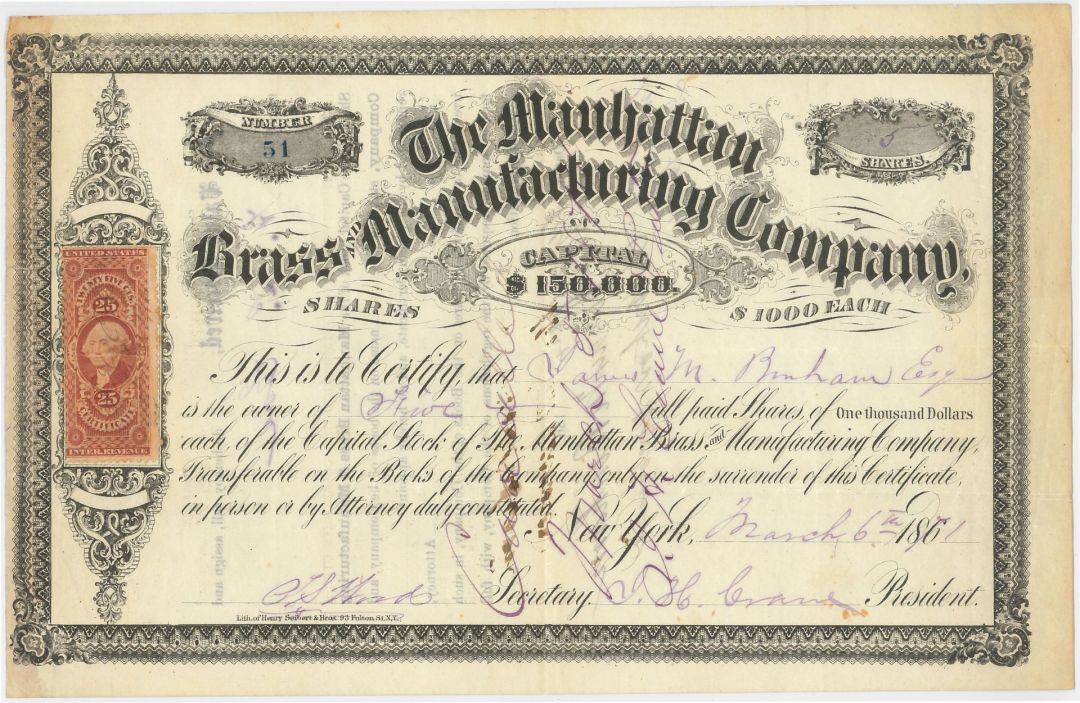 NUMBER
51
5
SHARES.
The Manhattan
Brass AND Manufacturing Company,
CAPITAL
$ 150,000.
SHARES
$ 1000 EACH
UNITED STATES
25
25
CERTIFICATE
INTER. REVENUE
This is to Certify, that James M. Bonham Esq
is the owner of Five full paid Shares, of One thousand Dollars
each, of the Capital Stock of The Manhattan Brass and Manufacturing Company,
Transferable on the Books of the Company only on the surrender of this Certificate,
in person or by Attorney duly constituted.
New York, March 6th 1871
Secretary. J. H. Crane President.
Lith. of Henry Seibert & Bros. 93 Fulton St. N.Y.
Cancelled